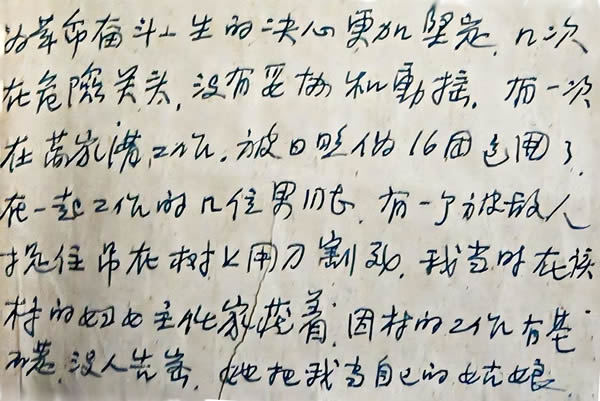 为革命奋斗一生的决心更加坚定，几次
在危险关头，没有妥协和動摇。有一次
在高家溝工作，被日照伪16团包围了，
在一起工作的几位男同志，有一个被敌人
捉住吊在树上用刀割死，我当时在该
村的妇女主任家藏着，因村的工作有基
础，没人告密，她把我当自己的姑娘，